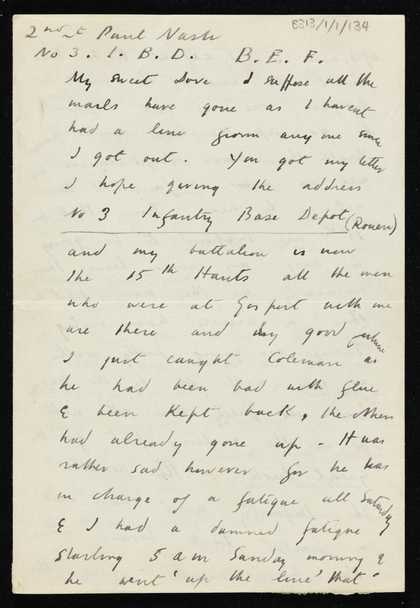 2nd Lt Paul Nash
8313/1/1/134
No 3. I. B. D. B. E. F.
My sweet Dove I suppose all the
mails have gone as I havent
had a line from any one since
I got out. You got my letter
I hope giving the address
No 3 Infantry Base Depot (Rouen)
and my battalion is now
the 15th Hants all the men
who were at Gosport with me
are there and by good fortune
I just caught Coleman as
he had been bad with flue
& been kept back, the others
had already gone up - It was
rather sad however for he was
in charge of a fatigue all Saturday
& I had a damned fatigue
starting 5 am Sunday morning &
he went 'up the line' that